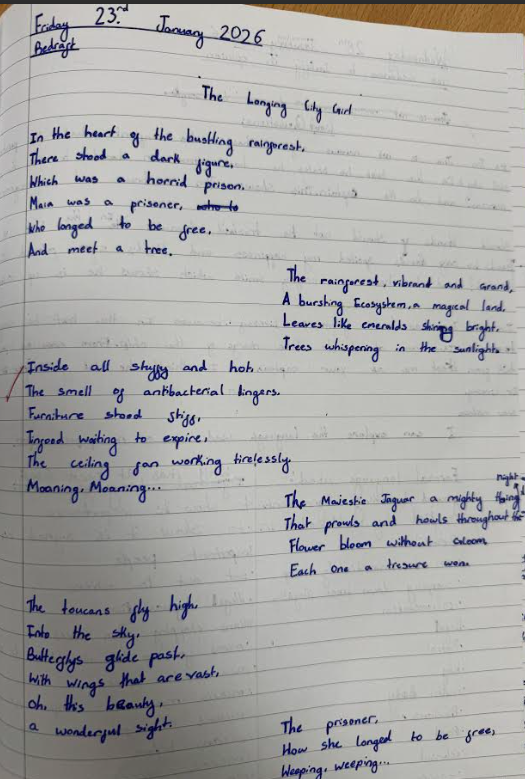 Friday 23rd January 2026
Redraft
The Longing City Girl
In the heart of the bustling rainforest,
There stood a dark figure,
Which was a horrid prison.
Maia was a prisoner, who to
Who longed to be free,
And meet a tree.
The rainforest, vibrant and Grand,
A bursting Ecosystem, a magical land,
Leaves like emeralds shining bright,
Trees whispering in the sunlight.
Inside all stuffy and hot,
The smell of antibacterial lingers.
Furniture stood stiff,
Tinfood waiting to expire,
The ceiling fan working tirelessly.
Moaning, Moaning...
The Majestic Jaguar a mighty thing
That prowls and howls throughout the
night
Flower bloom without
Each one a tresure won.
The toucans fly high,
Into the sky,
Butterflys glide past,
With wings that are vast,
Oh, this beauty,
a wonderful sight.
The prisoner,
How she longed to be free,
Weeping, weeping...